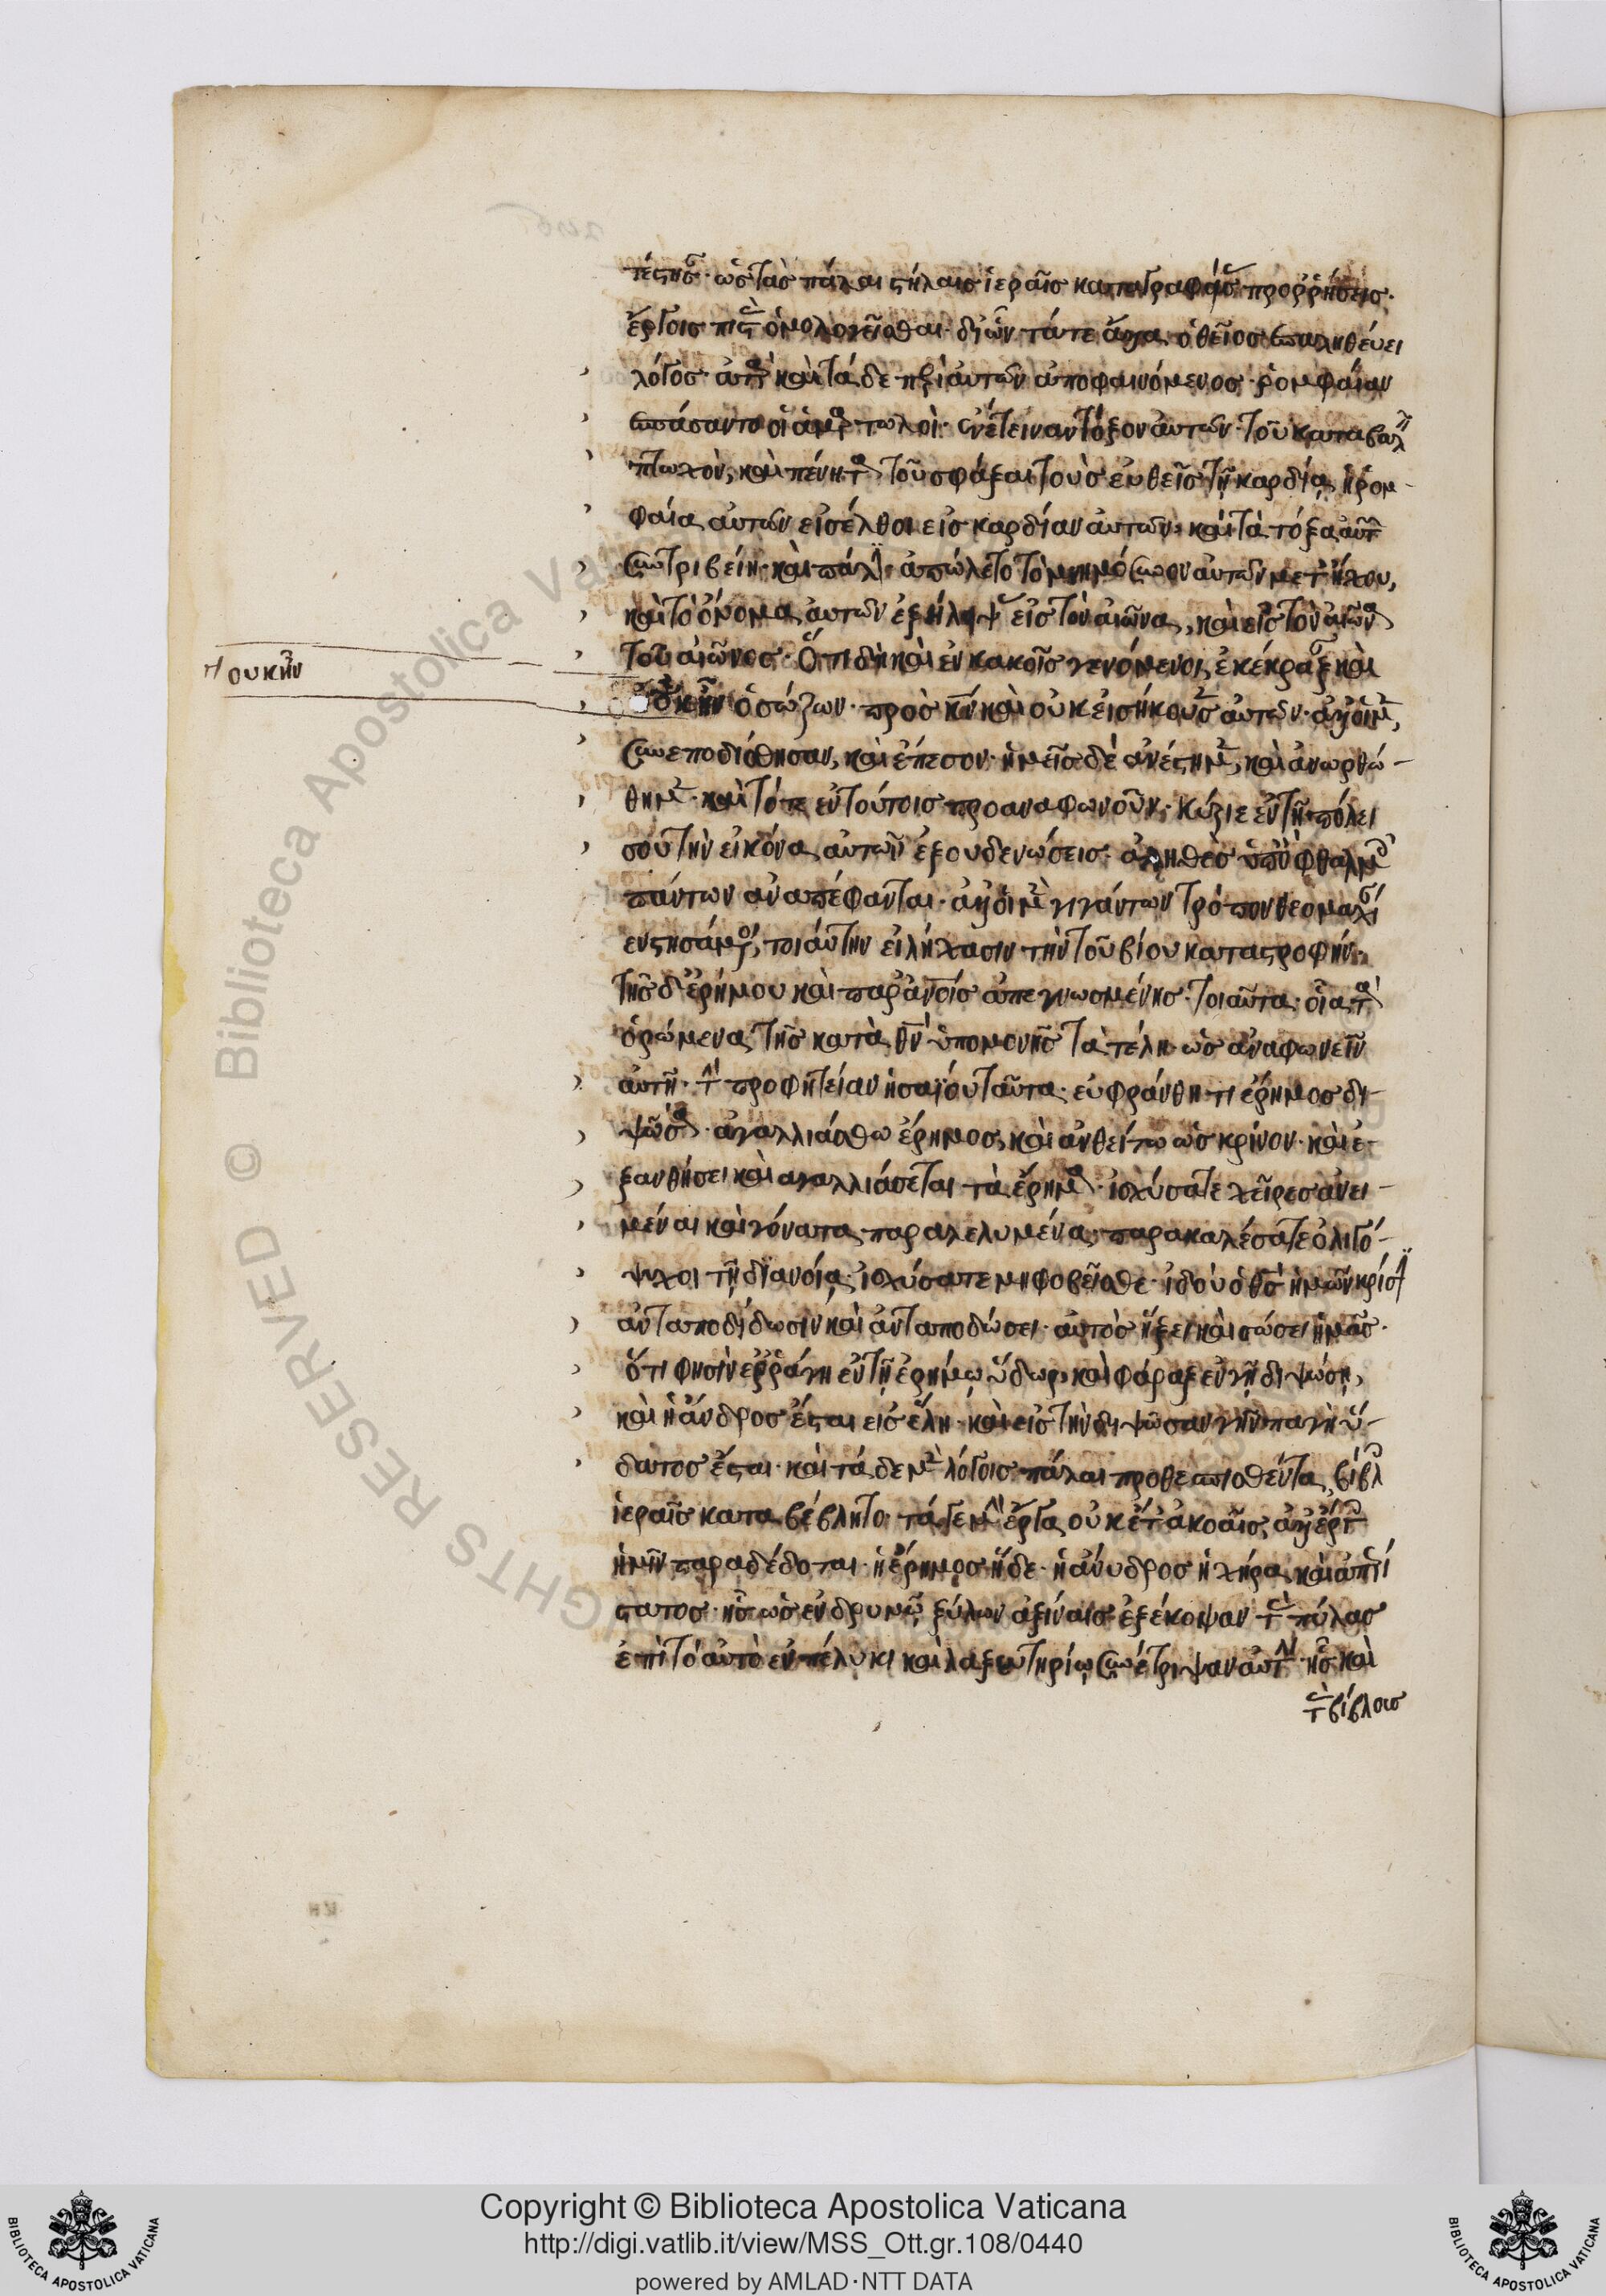 τέστησεν· ὡς τὰς πάλαι στήλαις ἱεραῖς καταγραφείσας προρρήσεις·
ἔργοις πιστὰς ὁμολογεῖσθαι· δι' ὧν τά τε ἄλλα ὁ θεῖος ἐπαληθεύει
λόγος· ἀτὰρ καὶ τάδε περὶ αὐτῶν ἀποφαινόμενος· ῥομφαίαν
ἐσπάσαντο οἱ ἁμαρτωλοὶ· ἐνέτειναν τόξον αὐτῶν· τοῦ καταβαλεῖν
πτωχὸν, καὶ πένητα, τοῦ σφάξαι τοὺς εὐθεῖς τῇ καρδίᾳ, ἡ ῥομ-
φαία αὐτῶν εἰσέλθοι εἰς καρδίαν αὐτῶν· καὶ τὰ τόξα αὐτῶν
συντριβείη· καὶ πάλιν· ἀπώλετο τὸ μνημόσυνον αὐτῶν μετ' ἤχου,
καὶ τὸ ὄνομα αὐτῶν ἐξήλειψας εἰς τὸν αἰῶνα, καὶ εἰς τὸν αἰῶνα
τοῦ αἰῶνος· Ὅτι δὴ καὶ ἐν κακοῖς γενόμενοι, ἐκέκραξαν καὶ
οὐκ ἦν ὁ σώζων· πρὸς κν καὶ οὐκ εἰσήκουσεν αὐτῶν· ἀλλ' οἱ μὲν,
συνεποδίσθησαν, καὶ ἔπεσον· ἡμεῖς δὲ ἀνέστημεν, καὶ ἀνωρθώ-
θημεν· καὶ τό τε ἐν τούτοις προαναφωνοῦν· κύριε ἐν τῇ πόλει
σου τὴν εἰκόνα αὐτῶν ἐξουδενώσεις· ἀληθὲς ὑπ' ὀφθαλμοῖς
πάντων ἀναπέφανται· ἀλλ' οἱ μὲν γιγάντων τρόπον θεομαχίαν
ἐνστησάμενοι, τοιαύτην εἰλήχασιν τὴν τοῦ βίου καταστροφήν·
τῆς δ' ἐρήμου καὶ παρ' ἀνοῖς ἀπεγνωσμένης· τοιαῦτα· οἷα τὰ
ὁρώμενα τῆς κατὰ θν ὑπομονῆς τὰ τέλη· ὡς ἀναφωνεῖν
αὐτῇ· τὴν προφητείαν ἡσαΐου ταῦτα· εὐφράνθητι ἔρημος δι-
ψῶσα· ἀγαλλιάσθω ἔρημος, καὶ ἀνθείτω ὡς κρίνον· καὶ ἐ-
ξανθήσει καὶ ἀγαλλιάσεται τὰ ἔρημα· ἰσχύσατε χεῖρες ἀνει-
μέναι καὶ γόνατα παραλελυμένα· παρακαλέσατε ὀλιγό-
ψυχοι τῇ διανοίᾳ· ἰσχύσατε μὴ φοβεῖσθε· ἰδοὺ ὁ θς ἡμῶν κρίσιν
ἀνταποδίδωσιν καὶ ἀνταποδώσει· αὐτὸς ἥξει καὶ σώσει ἡμᾶς·
ὅτι φησὶν ἐρράγη ἐν τῇ ἐρήμῳ ὕδωρ, καὶ φάραξ ἐν γῇ διψώσῃ,
καὶ ἡ ἄνυδρος ἔσται εἰς ἕλη· καὶ εἰς τὴν διψῶσαν γῆν παγὴ ὕ-
δατος ἔσται· καὶ τάδε μὲν λόγοις πάλαι προθεσπισθέντα, βίβλοις
ἱεραῖς καταβέβλητο· τά γε μὴν ἔργα οὐκέτ' ἀκοαῖς, ἀλλ' ἔργοις
ἡμῖν παραδέδοται· ἡ ἔρημος ἥδε· ἡ ἄνυδρος ἡ χήρα, καὶ ἀπερί
στατος· ἧς ὡς ἐν δρυμῷ ξύλων ἀξίναις ἐξέκοψαν τὰς πύλας
ἐπὶ τὸ αὐτὸ ἐν πέλυκι καὶ λαξευτηρίῳ συνέτριψαν αὐτήν· ἧς καὶ
τὰς βίβλους
οὐκ ἦν
Copyright © Biblioteca Apostolica Vaticana
http://digi.vatlib.it/view/MSS_Ott.gr.108/0440
powered by AMLAD·NTT DATA
BIBLIOTECA APOSTOLICA VATICANA
BIBLIOTECA APOSTOLICA VATICANA